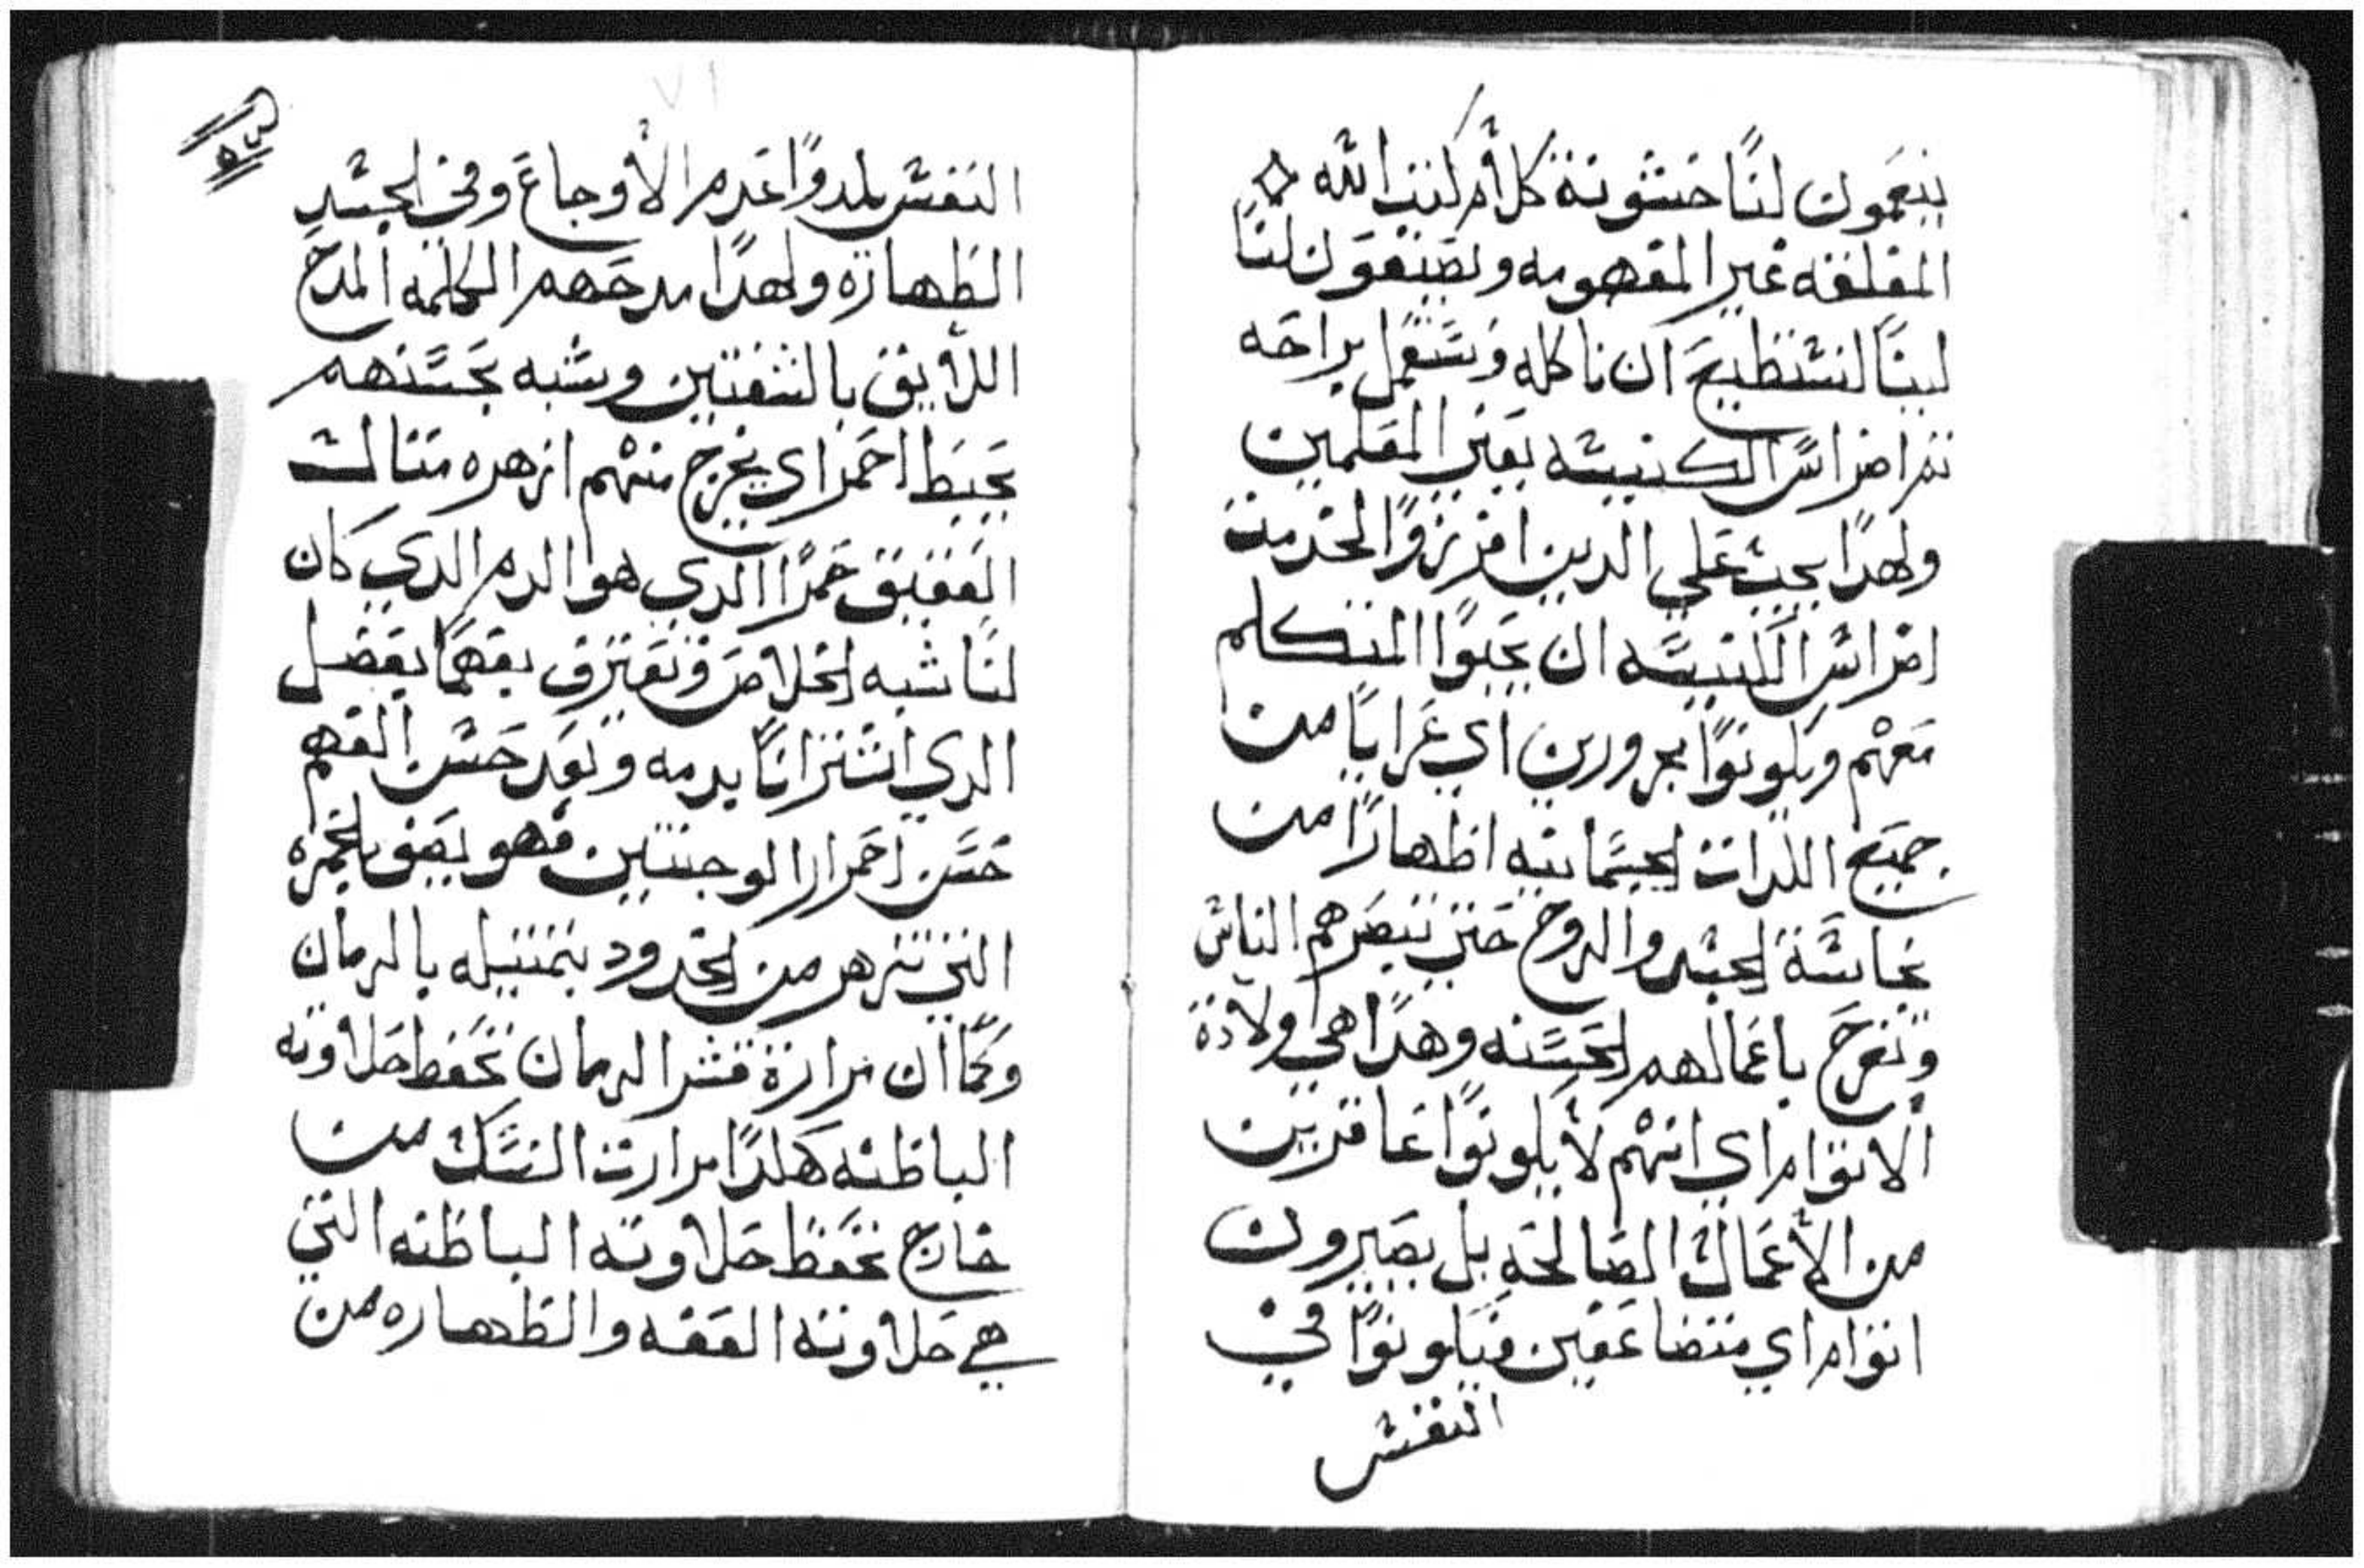 ينعمون لنا خشونة كل أمر كتب الله
المغلقه غير المفهومه ويصنعون لنا
لينا لنستطيع ان ناكله ونستعمل براحه
ثم اضراس الكنيسه يعني المعلمين
ولهدا يجب علي الدين افرزوا لخدمت
اضراس الكنيسه ان يجبوا المتكلم
معهم ويكونوا مجرورين اي عرايا من
جميع اللدات الجسمانيه اظهارا من
نجاسة الجسد والروح حتي تبصرهم الناس
وتفرح باعمالهم الحسنه وهدا هي ولادة
الاتوام اي انهم لا يكونوا عاقرين
من الأعمال الصالحه بل يصيرون
اتوام اي متضاعفين فيكونوا في
النفس
النفس يلدوا عدم الأوجاع وفي الجسد
الطهاره ولهدا مدحهم الكلمه المدح
اللايق بالشفتين وشبه بحسنهم
بخيط احمر اي يخرج منهم ازهره متالت
العقيق حمرا الدي هو الدم الدي كان
لنا شبه الخلاص ونعترف بفهما بفضل
الدي اشترانا بدمه وبعد حسن الفهم
حسن احمرار الوجنتين فهو يصف الحمره
التي تزهر من الخدود بتمتيله بالرمان
وكما ان مرارة قشر الرمان تحفظ حلاوته
الباطنه هكدا مرارت النسك من
خارج تحفظ حلاوته الباطنه التي
هي حلاوته العفه والطهاره من